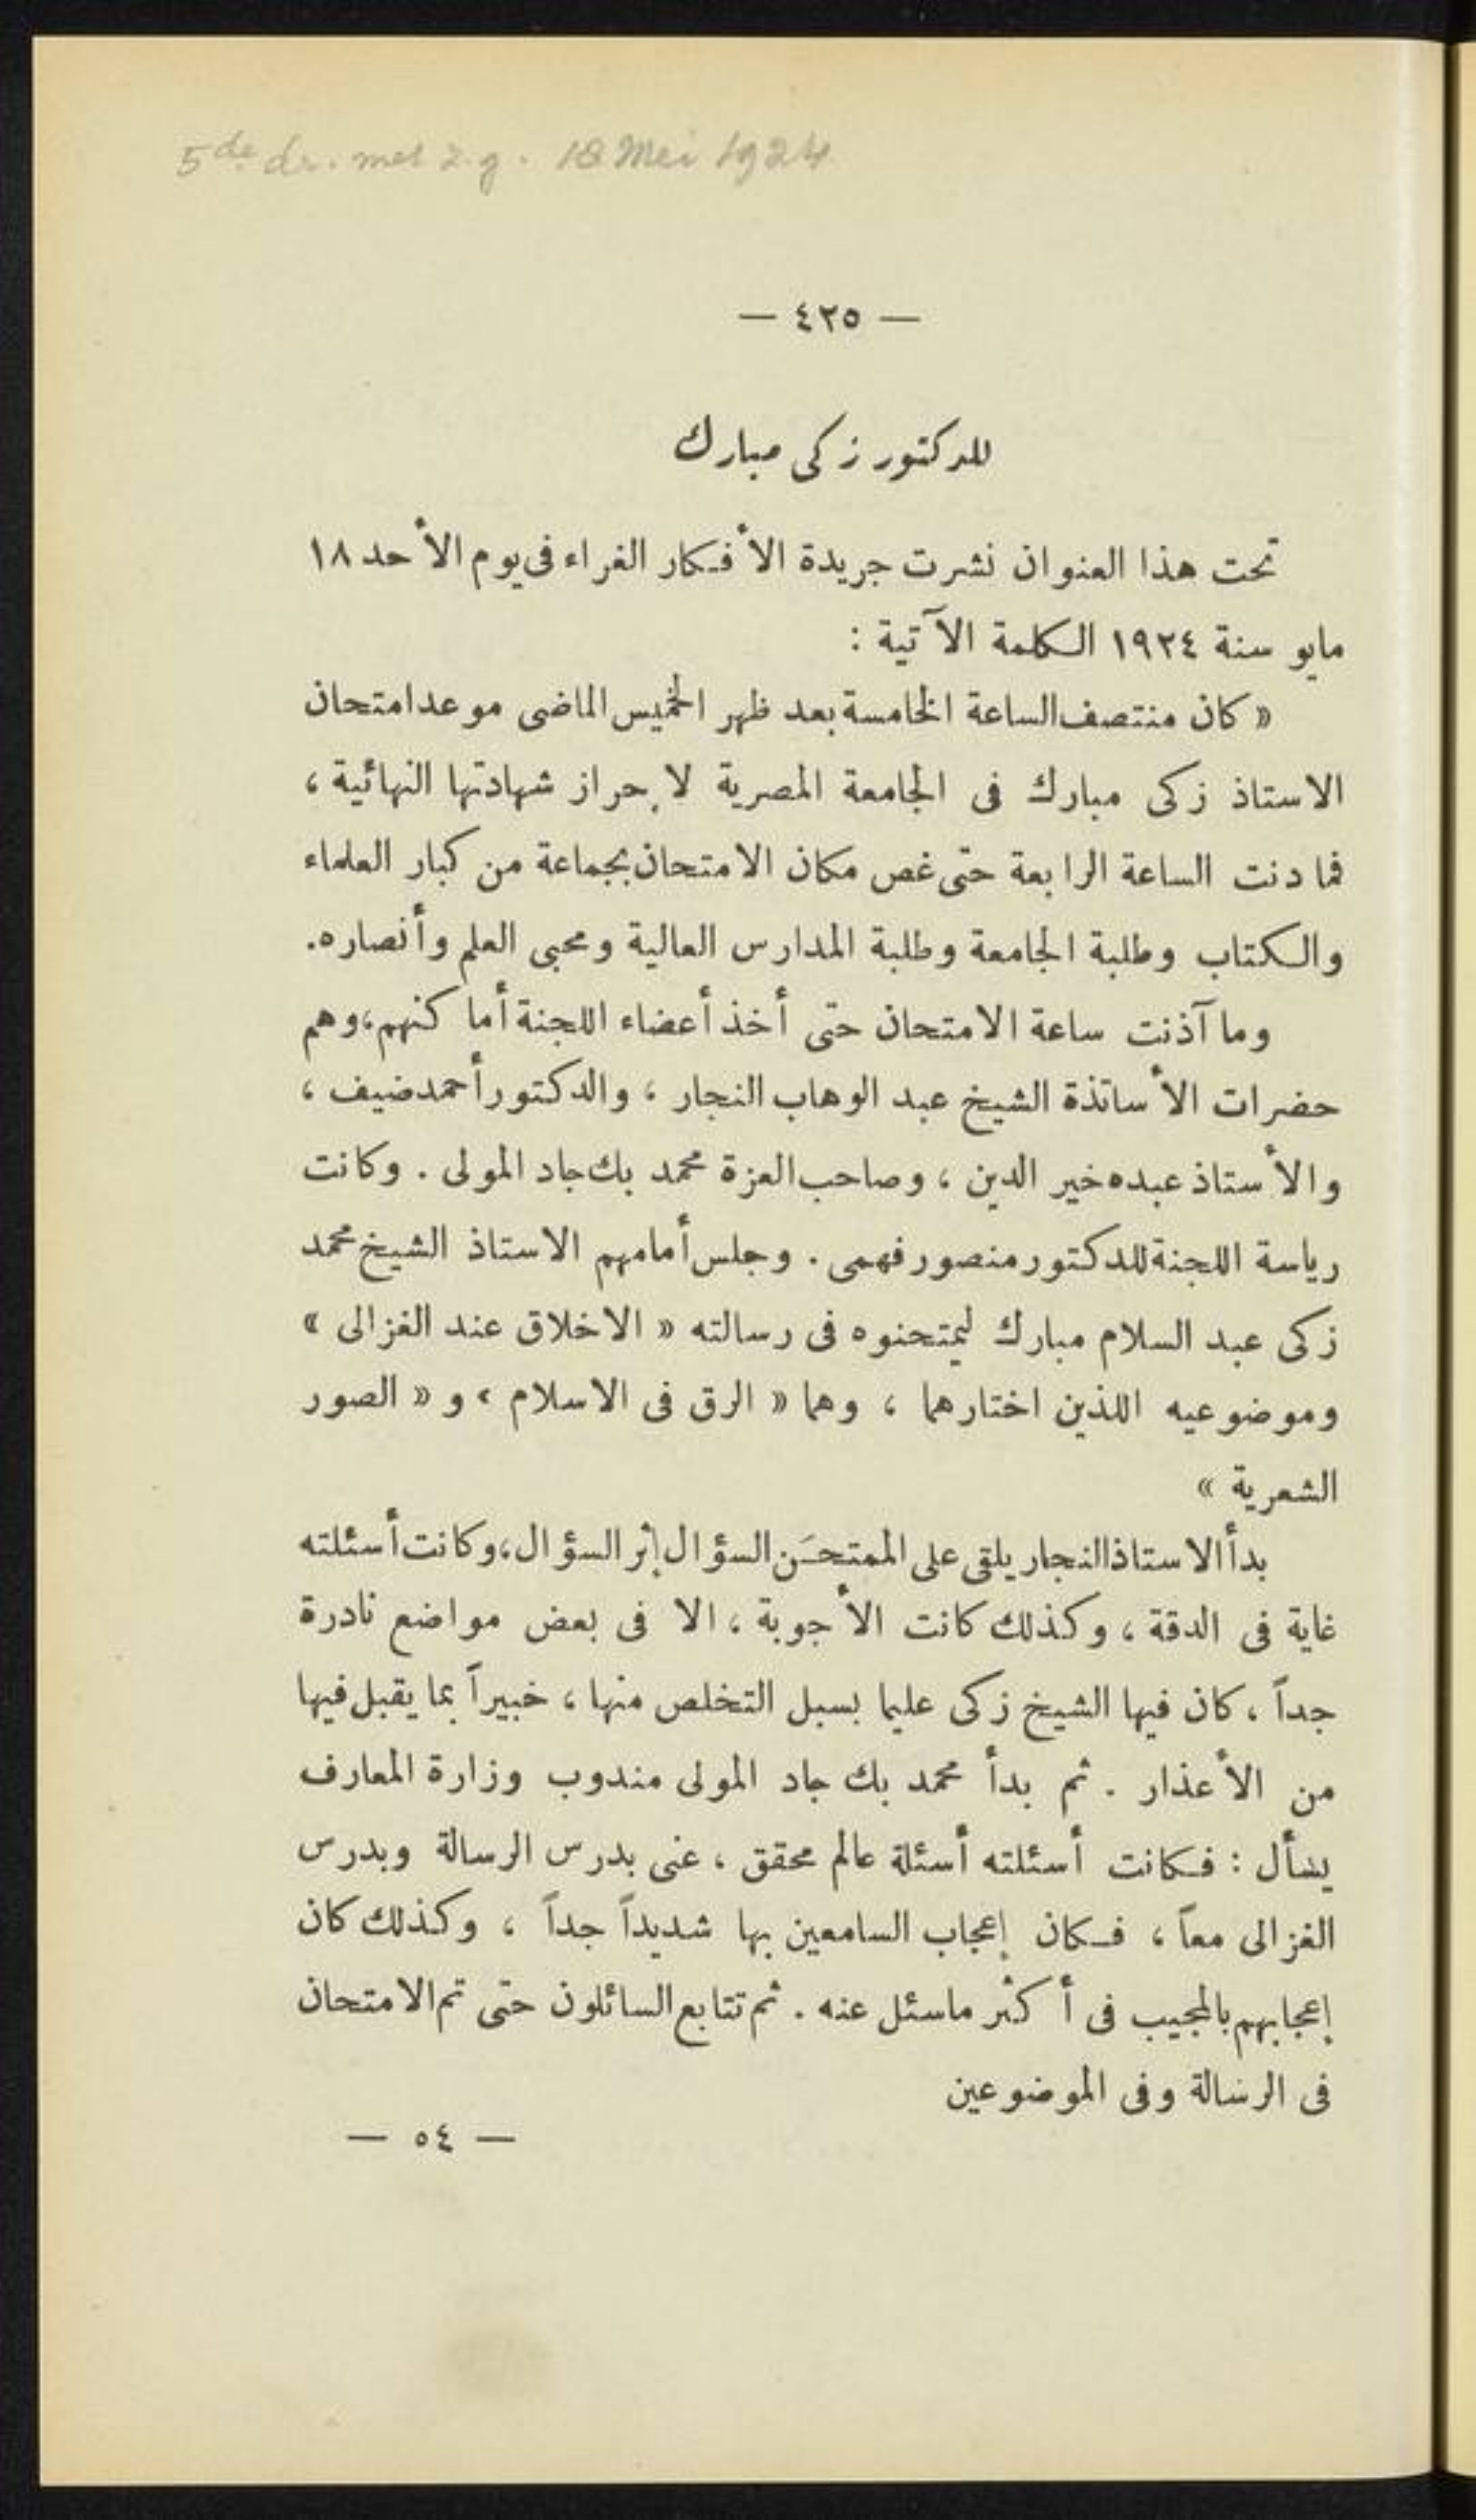 5de dr. met z.g. 18 Mei 1924
— ٤٢٥ —
للدكتور زكى مبارك
تحت هذا العنوان نشرت جريدة الأفكار الغراء فى يوم الأحد ١٨
مايو سنة ١٩٢٤ الكلمة الآتية :
« كان منتصف الساعة الخامسة بعد ظهر الخميس الماضى موعد امتحان
الاستاذ زكى مبارك فى الجامعة المصرية لإحراز شهادتها النهائية ،
فما دنت الساعة الرابعة حتى غص مكان الامتحان بجماعة من كبار العلماء
والكتاب وطلبة الجامعة وطلبة المدارس العالية ومحبى العلم وأنصاره.
وما آذنت ساعة الامتحان حتى أخذ أعضاء اللجنة أماكنهم، وهم
حضرات الأساتذة الشيخ عبد الوهاب النجار ، والدكتور أحمد ضيف ،
والأستاذ عبده خير الدين ، وصاحب العزة محمد بك جاد المولى . وكانت
رياسة اللجنة للدكتور منصور فهمى . وجلس أمامهم الاستاذ الشيخ محمد
زكى عبد السلام مبارك ليمتحنوه فى رسالته « الاخلاق عند الغزالى »
وموضوعيه اللذين اختارهما ، وهما « الرق فى الاسلام » و « الصور
الشعرية »
بدأ الاستاذ النجار يلقى على الممتحَن السؤال إثر السؤال، وكانت أسئلته
غاية فى الدقة ، وكذلك كانت الأجوبة ، الا فى بعض مواضع نادرة
جداً ، كان فيها الشيخ زكى عليما بسبل التخلص منها ، خبيراً بما يقبل فيها
من الأعذار . ثم بدأ محمد بك جاد المولى مندوب وزارة المعارف
يسأل : فكانت أسئلته أسئلة عالم محقق ، عنى بدرس الرسالة وبدرس
الغزالى معاً ، فكان إعجاب السامعين بها شديداً جداً ، وكذلك كان
إعجابهم بالمجيب فى أكثر ماسئل عنه . ثم تتابع السائلون حتى تم الامتحان
فى الرسالة وفى الموضوعين
— ٥٤ —